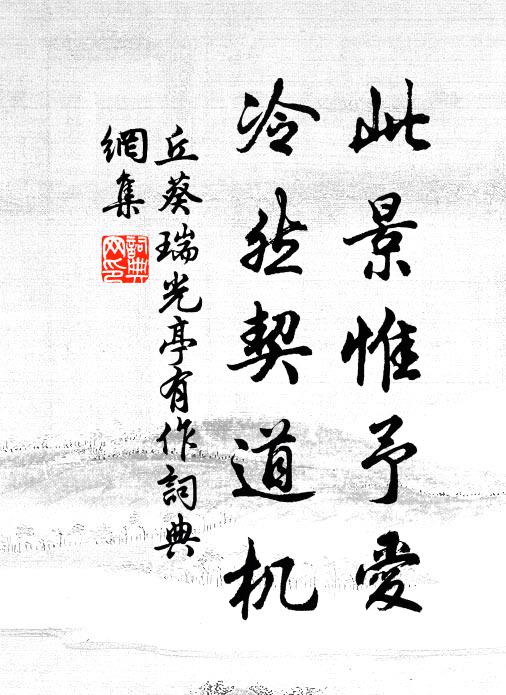 此景惟予愛
冷然契道机
丘葵瑞光亭有作詞典
網集
詞典
网印